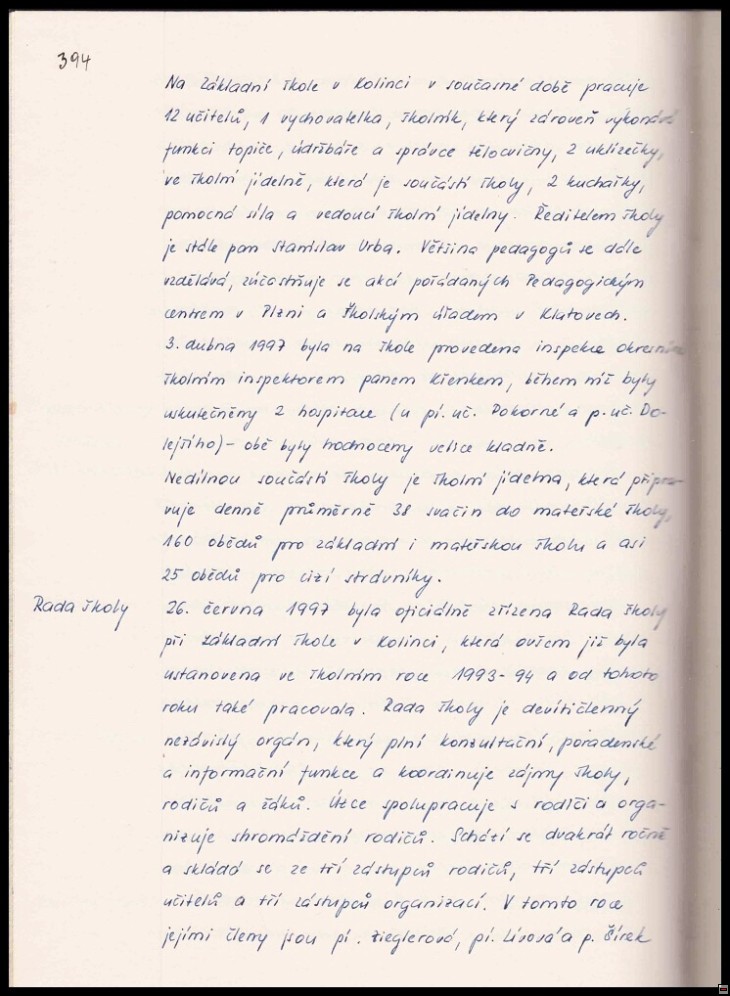 394
Na Základní škole v Kolinci v současné době pracuje
12 učitelů, 1 vychovatelka, školník, který zároveň vykonává
funkci topiče, údržbáře a správce tělocvičny, 2 uklízečky,
ve školní jídelně, která je součástí školy, 2 kuchařky,
pomocná síla a vedoucí školní jídelny. Ředitelem školy
je stále pan Stanislav Urba. Většina pedagogů se dále
vzdělává, zúčastňuje se akcí pořádaných Pedagogickým
centrem v Plzni a Školským úřadem v Klatovech.
3. dubna 1997 byla na škole provedena inspekce okresním
školním inspektorem panem Křenkem, během níž byly
uskutečněny 2 hospitace (u pí. uč. Pokorné a p. uč. Do-
lejšího) - obě byly hodnoceny velice kladně.
Nedílnou součástí školy je školní jídelna, která připra-
vuje denně průměrně 38 svačin do mateřské školy,
160 obědů pro základní i mateřskou školu a asi
25 obědů pro cizí strávníky.
Rada školy
26. června 1997 byla oficiálně zřízena Rada školy
při Základní škole v Kolinci, která ovšem již byla
ustanovena ve školním roce 1993-94 a od tohoto
roku také pracovala. Rada školy je devítičlenný
nezávislý orgán, který plní konzultační, poradenské
a informační funkce a koordinuje zájmy školy,
rodičů a žáků. Úzce spolupracuje s rodiči a orga-
nizuje shromáždění rodičů. Schází se dvakrát ročně
a skládá se ze tří zástupců rodičů, tří zástupců
učitelů a tří zástupců organizací. V tomto roce
jejími členy jsou pí. Zieglerová, pí. Lísová a p. Šírek